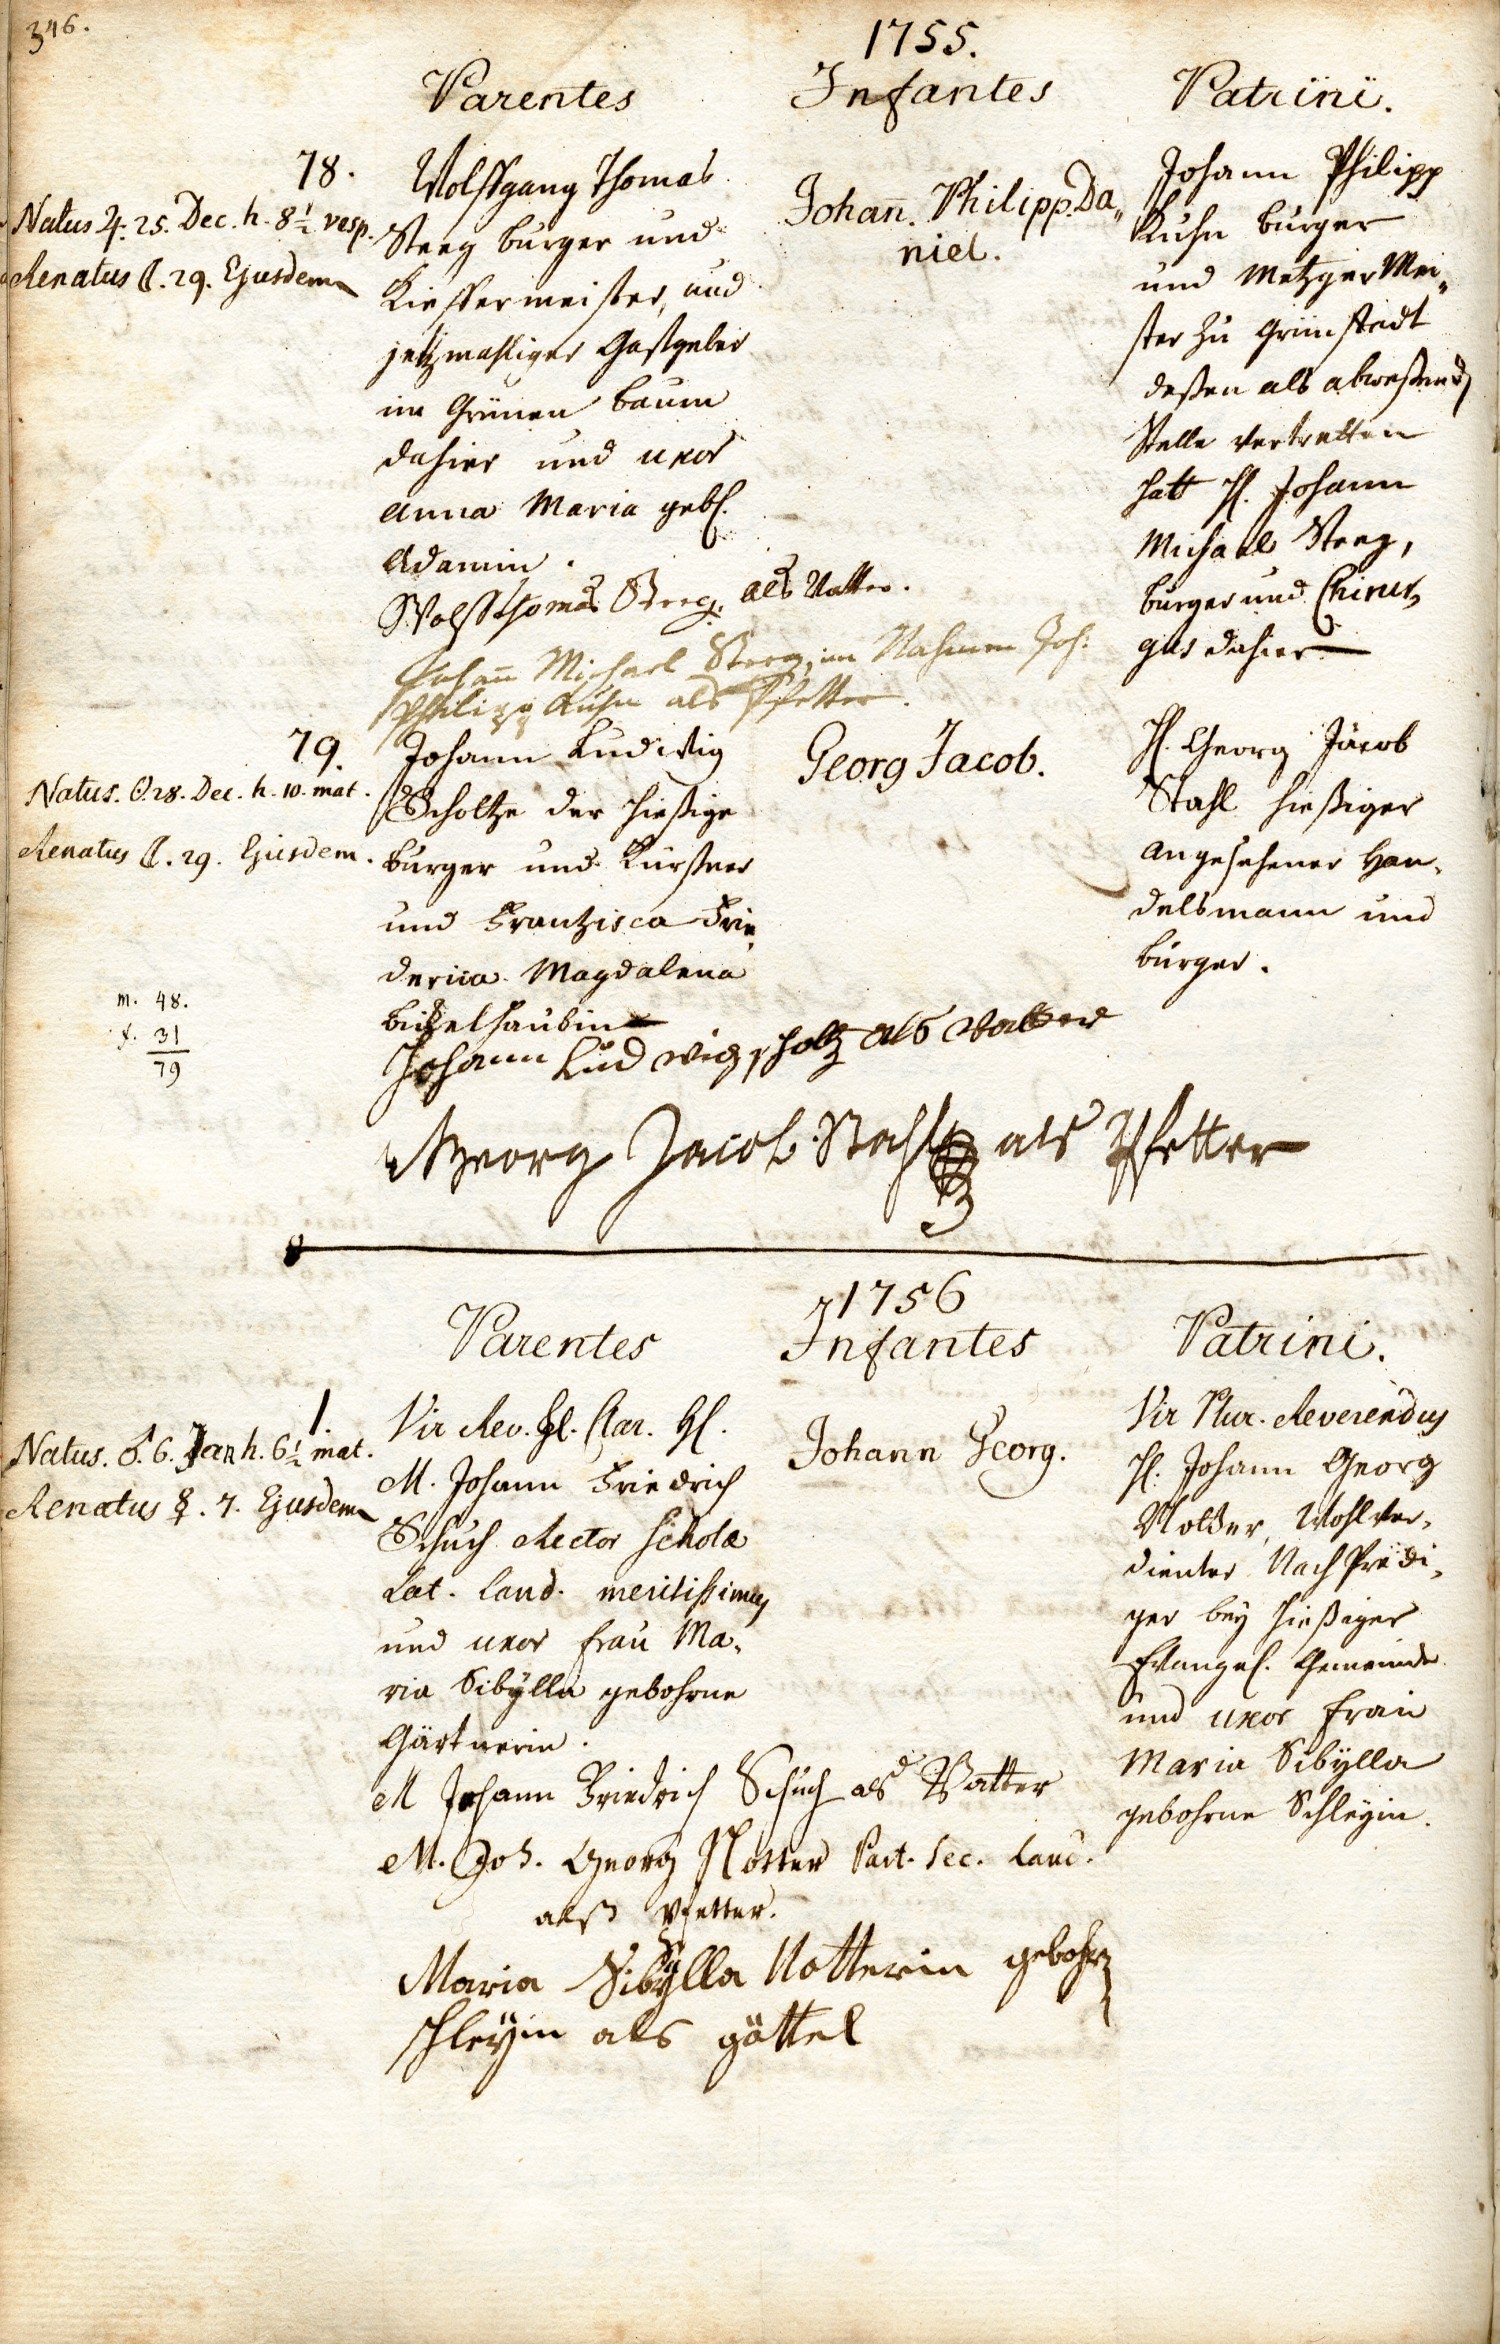 346.
1755.
Parentes
Infantes
Patrini.
78.
Natus ♃. 25. Dec. h. 8½ vesp.
Renatus ☾. 29. Ejusdem
Wolffgang Thomas
Steeg burger und
Kieffermeister, und
jetzmahliger Gastgeber
im Grünen baum
dahier und uxor
Anna Maria gebh.
Adamin.
Johan̄. Philipp. Da„
niel.
Johann Philipp
Kuhn burger
und Metzger Mei„
ster zu Grünstadt
deßen als abweßend
Stelle vertretten
hatt H. Johann
Michael Steeg,
burger und Chirur„
gus dahier
Wolff thomas Steeg. als Vatter.
Johan̄ Michael Steeg, im Nahmen Joh.
Philipp Kuhn als Pfetter.
79.
Natus. ☉. 28. Dec. h. 10. mat.
Renatus ☾. 29. Ejusdem.
Johann Ludwig
Scholtze der hießige
burger und Kürßner
und Frantzisca Frie„
derica Magdalena
Georg Jacob.
H. Georg Jacob
Stahl hießiger
angesehener Han„
delsmann und
burger.
m. 48.
f. 31
79
Johann Ludwig scholtz als Vatter
Georg Jacob Stahl als Pfetter
1756
Parentes
Infantes
Patrini.
1.
Natus. ♂. 6. Jan h. 6½ mat.
Renatus ☿. 7. Ejusdem
Vir Rev. Cl. H.
M. Johann Friedrich
Schuch Rector scholæ
Lat. Land. meritißimus
und uxor frau Ma„
ria Sibÿlla gebohrne
Gärtnerin.
Johann Georg.
Vir Plur. Reverendus
H. Johann Georg
Notter, Wohlver„
dienter Nach Predi„
ger beÿ hießiger
Evangel. Gemeinde
und uxor frau
Maria Sibÿlla
gebohrne Schleÿin.
M Johann Friedrich Schuch als Vatter
M. Joh. Georg Notter Past. Sec. Land.
alß Pfetter.
Maria Sibÿlla Notterin gebohrn
schleÿin als göttel